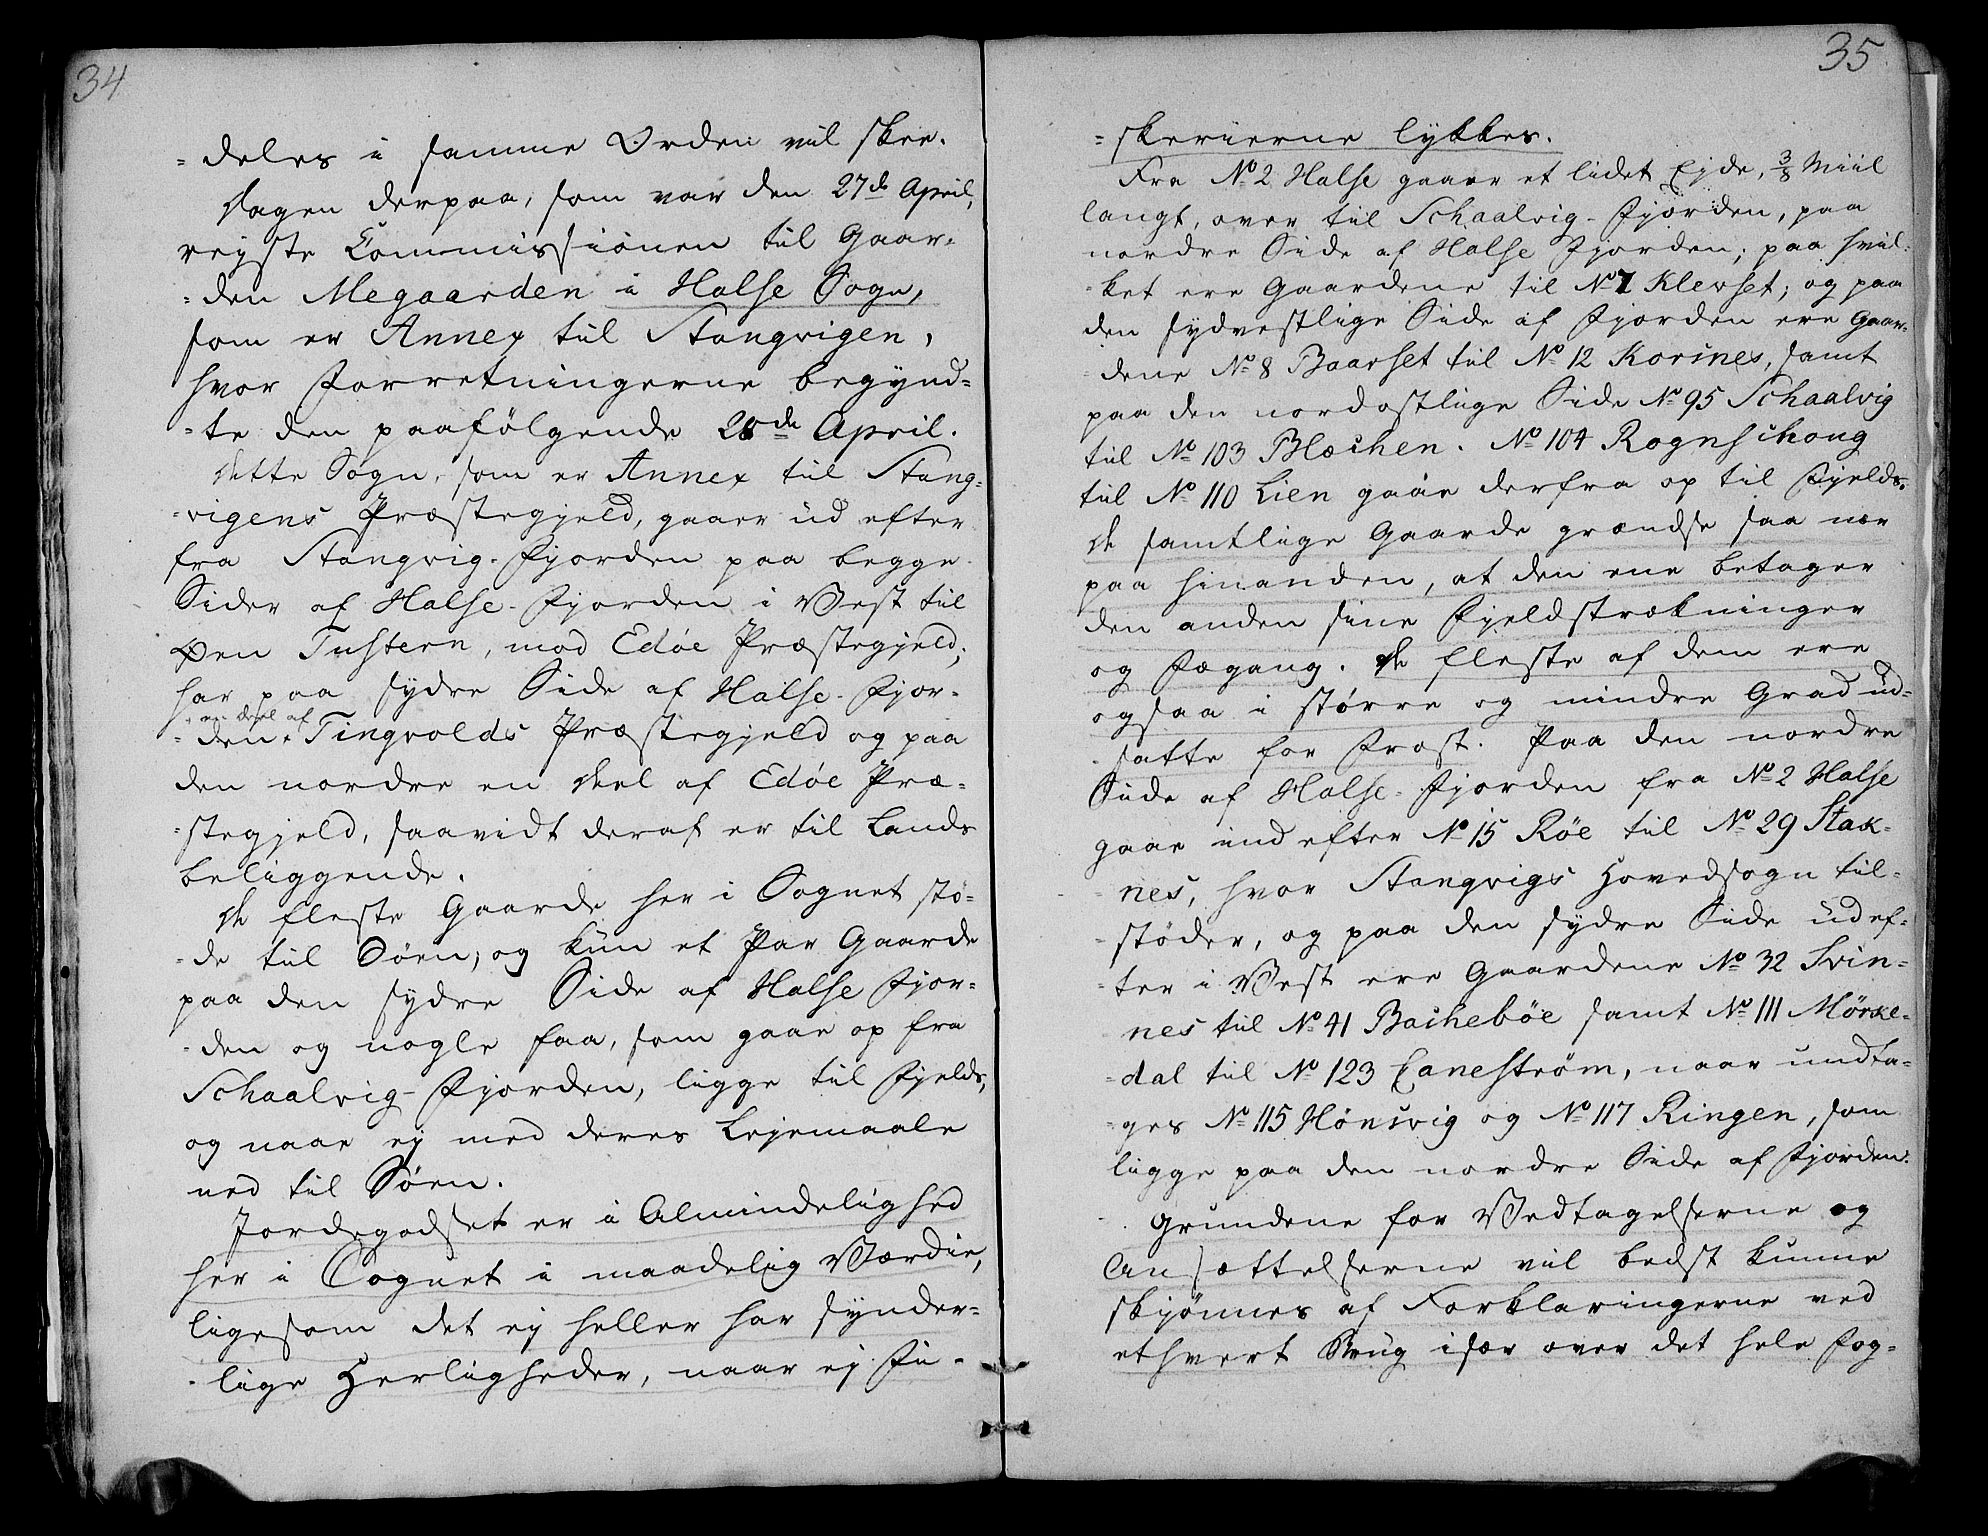 34
=deles i samme Orden vil skee.
Dagen derpaa, som var den 27de April,
rejste Commissionen til Gaar-
=den Megaarden i Halse Sogn,
som er Annex til Stangvigen,
hvor Forretningerne begynd=
=te den paafølgende 28de April.
Dette Sogn, som er Annex til Stang=
=vigens Præstegjeld, gaaer ud efter
fra Stangvig-Fjorden paa begge
Sider af Halse-Fjorden i Vest til
Øen Tustern, mod Edøe Præstegjeld;
har paa sydre Side af Halse-Fjor-
en Deel af
=den Tingvolds Præstegjeld og paa
den nordre en Deel af Edøe Præ=
=stegjeld, saavidt deraf er til Lands
beliggende.
De fleste Gaarde her i Sognet stø=
=de til Søen; og kun et Par Gaarde
paa den sydre Side af Halse Fjor=
=den og nogle faa, som gaae op fra
Schaalvig-Fjorden, ligge til Fjelds,
og naae ej med deres Lejemaale
ned til Søen.
Jordegodset er i Almindelighed
her i Sognet i maadelig Værdie,
ligesom det ej heller har synder=
=lige Herligheder, naar ej Fi=
35
=skerierne lykkes.
Fra No 2 Halse gaaer et lidet Ejde, 3/8 Miil
langt, over til Schaalvig-Fjorden, paa
nordre Side af Halse Fjorden; paa hvil=
=ket ere Gaardene til No 7 Klevset; og paa
den sydvestlige Side af Fjorden ere Gaar=
=dene No 8 Baarset til No 12 Korsnes, samt
paa den nordostlige Side No 95 Schaalvig
til No 103 Blæchen. No 104 Rognschong
til No 110 Lien gaae derfra op til Fjelds.
De samtlige Gaarde grændse saa nær
paa hinanden, at den ene betager
den anden sine Fjeldstrækninger
og Fægang. De fleste af dem ere
ogsaa i større og mindre Grad ud=
=satte for Frost. Paa den nordre
Side af Halse-Fjorden fra No 2 Halse
gaae ind efter No 15 Røe til No 29 Stak=
=nes, hvor Stangvigs Hovedsogn til=
=støder, og paa den sydre Side ud ef=
=ter i Vest ere Gaardene No 32 Svin=
nes til No 41 Bachebøe samt No 111 Mørke=
=dal til No 123 Caneström, naar undta=
=ges No 115 Hønsvig og No 117 Ringen, som
ligge paa den nordre Side af Fjorden.
Grundene for Vedtagelserne og
Ansættelserne vil bedst kunne
skjønnes af Forklaringerne ved
ethvert Brug især over det hele Fog=